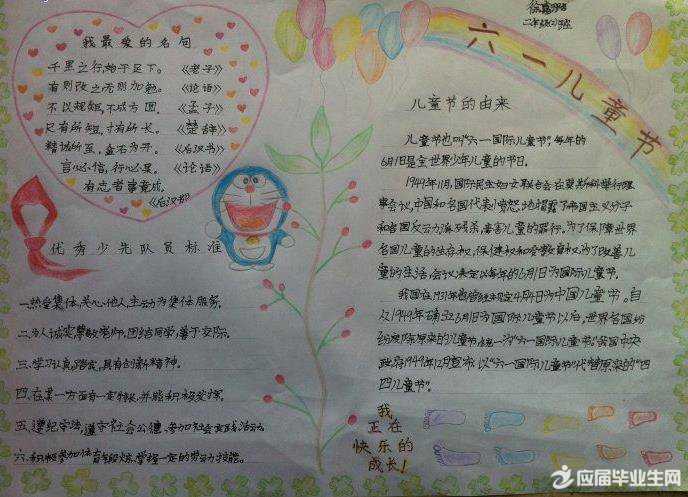 徐嘉
二年级(2)班
我最爱的名句
千里之行,始于足下。《老子》
有则改之,无则加勉。《论语》
不以规矩,不成方圆。《孟子》
尺有所短,寸有所长。《楚辞》
精诚所至,金石为开。《后汉书》
言必信,行必果。《论语》
有志者事竟成。
《后汉书》
优秀少先队员标准
一、热爱集体,关心他人,主动为集体服务。
二、为人诚实,尊敬老师,团结同学,善于交际。
三、学习认真踏实,具有创新精神。
四、在某一方面有一定特长,并能积极发挥。
五、遵纪守法,遵守社会公德,参加社会实践活动
六、积极参加体育锻炼,掌握一定的劳动技能。
六一儿童节
儿童节的由来
儿童节也叫“六一国际儿童节”,每年的
6月1日是全世界少年儿童的节日。
1949年11月,国际民主妇女联合会在莫斯科举行理
事会议,中国和各国代表愤怒地揭露了帝国主义分子
和各国反动派残杀、毒害儿童的罪行。为了保障世界
各国儿童的生存权、保健权和受教育权,为了改善儿
童的生活,会议决定以每年的6月1日为国际儿童节。
我国在1931年曾经规定4月4日为中国儿童节。自
从1949年确立6月1日为国际儿童节以后,世界各国纷
纷废除原来的儿童节,统一为“六一国际儿童节”我国中央
政府1949年12月宣布以“六一国际儿童节”代替原来的“四
四儿童节”。
我
正在
快乐的
成长!
应届毕业生网